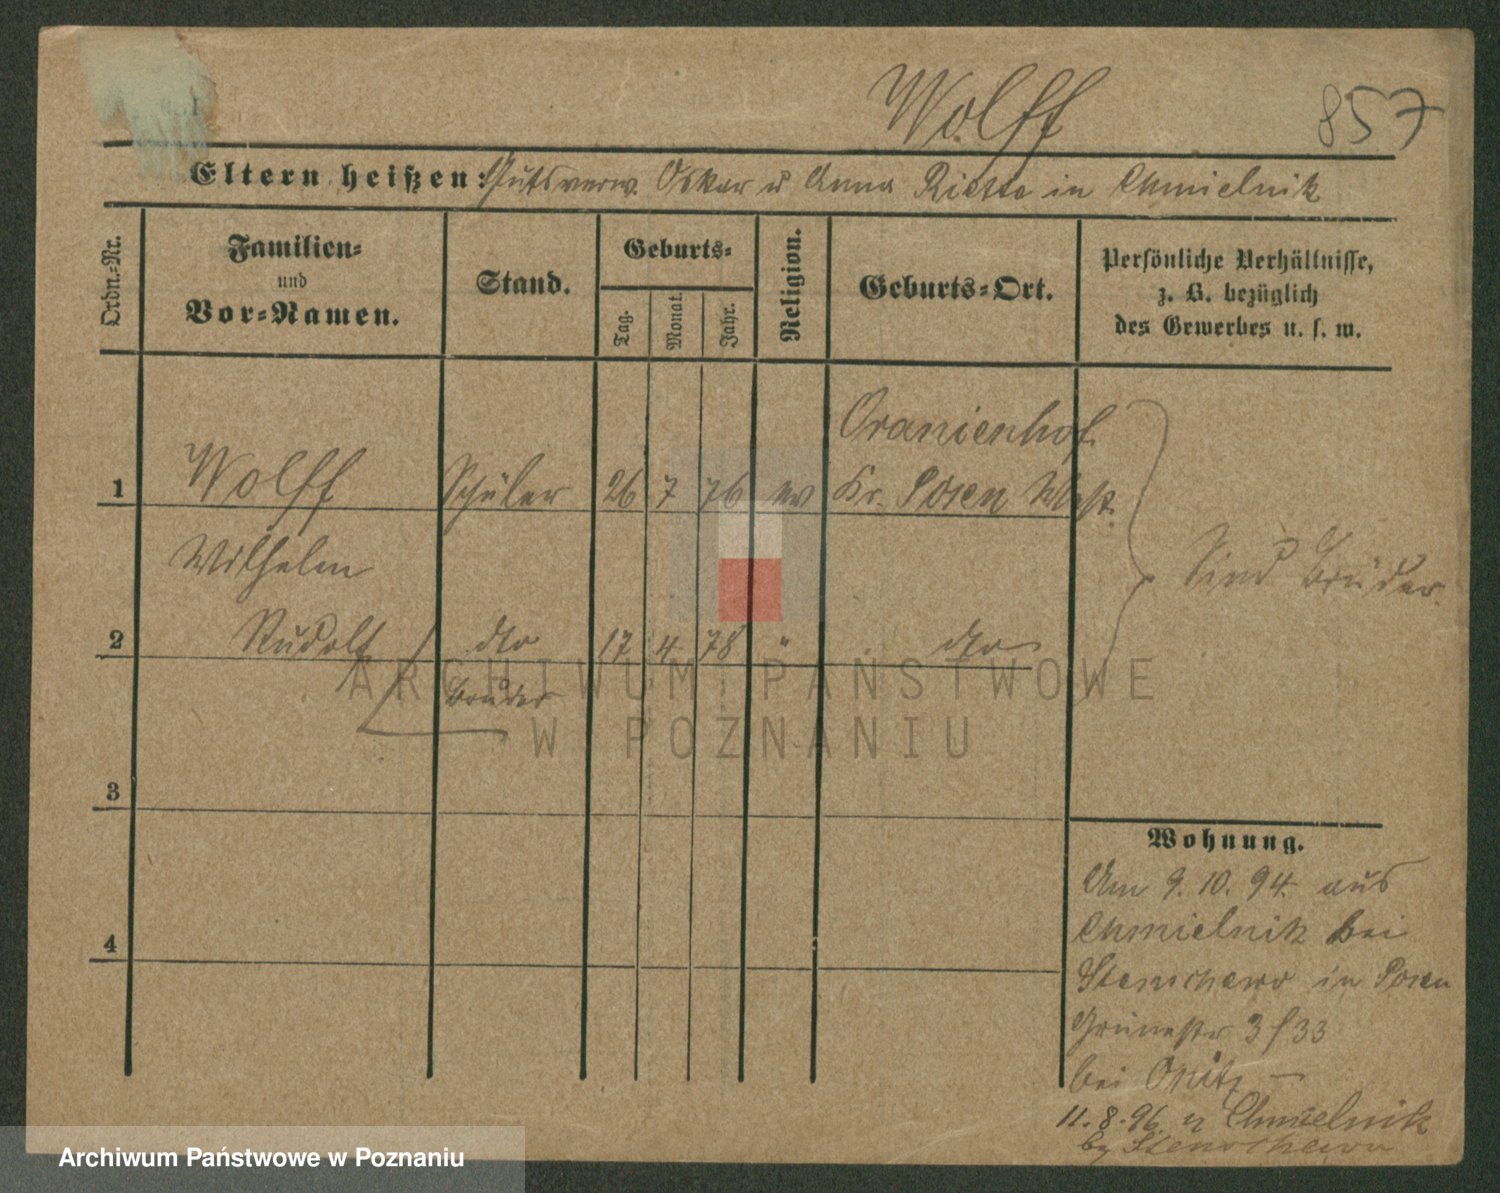 Wolff
857
Eltern heißen: Gutsverw. Oskar u Anna Riesse in Chmielnik
Ordn.-Nr.
Familien-
und
Vor-Namen.
Stand.
Geburts-
Tag.
Monat.
Jahr.
Religion.
Geburts-Ort.
Persönliche Verhältnisse,
z. B. bezüglich
des Gewerbes u. s. w.
Oranienhof
1 Wolff Schüler 26 7 76 ev Kr. Posen West.
Wilhelm
Sind Brüder.
2 Rudolf dto 17 4 78 " dto
Bruder
3
4
Wohnung.
Am 9. 10. 94. aus
Chmielnik bei
Stenschewo in Posen
Grünestr 3 f 33
bei Opitz
11. 8. 96. n Chmielnik
by Stenschewo
ARCHIWUM PAŃSTWOWE
W POZNANIU
Archiwum Państwowe w Poznaniu